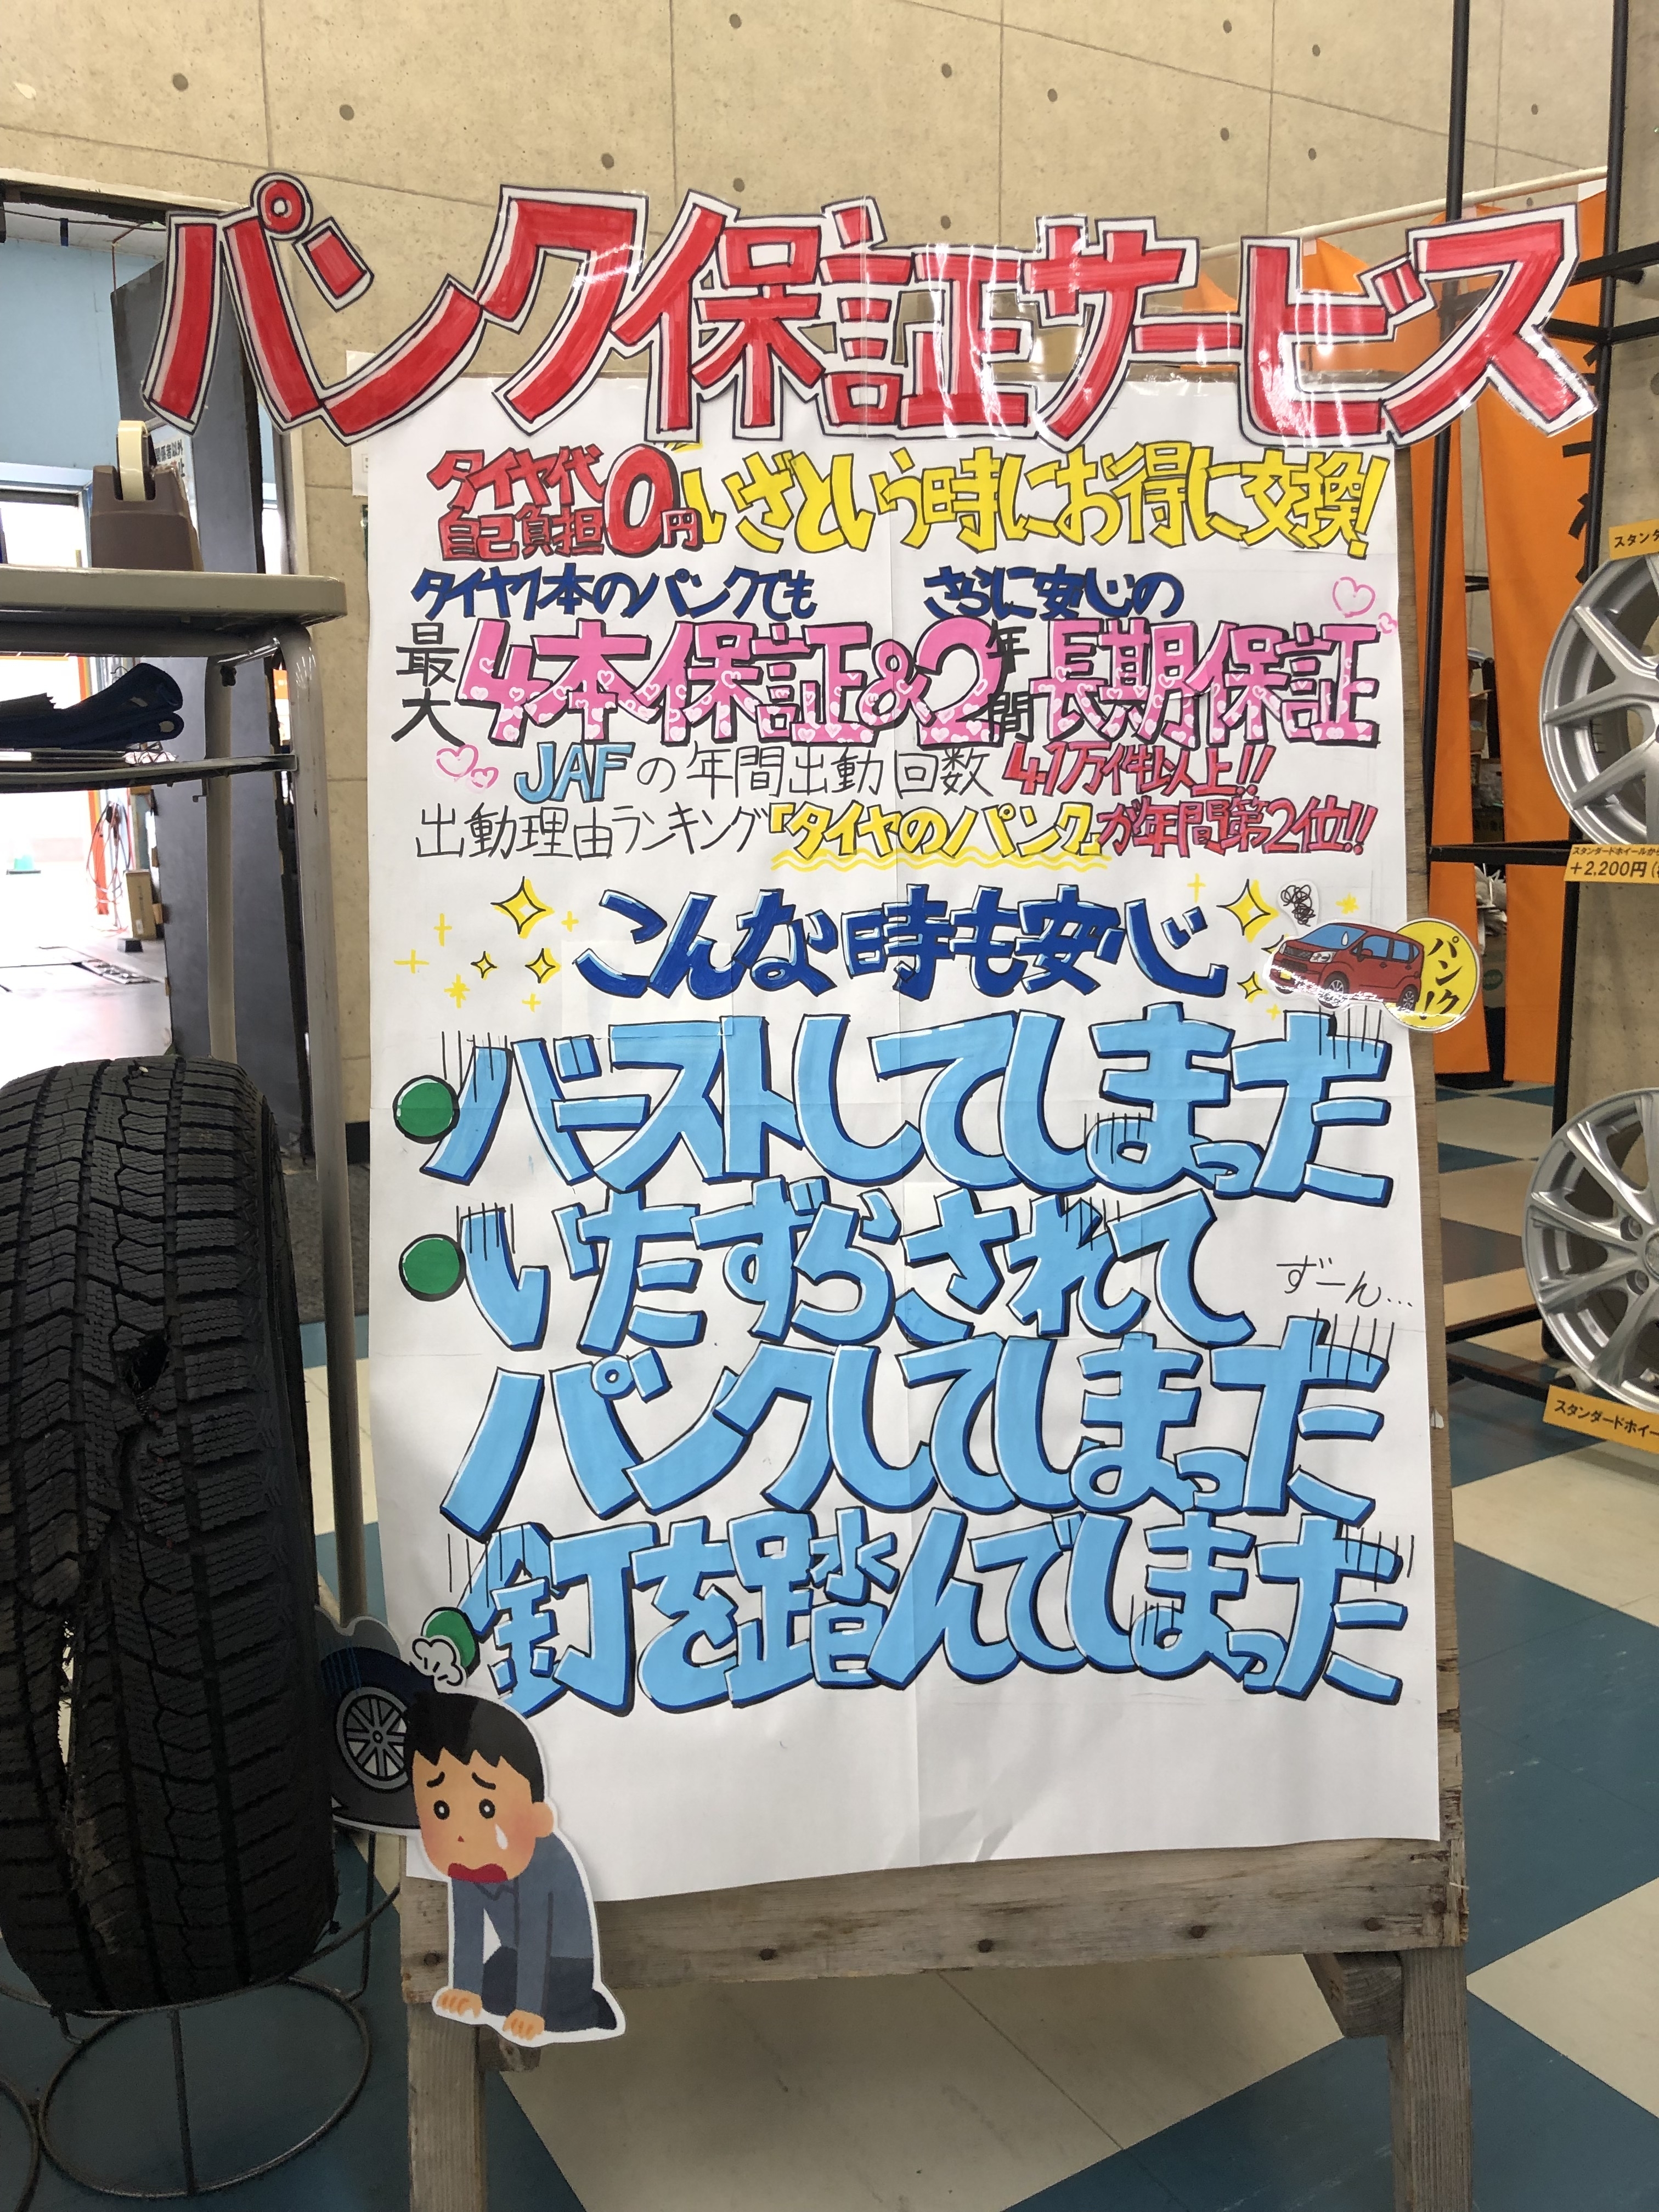 パンク保証サービス
タイヤ代
自己負担0円
いざという時にお得に交換!
タイヤ1本のパンクでも
さらに安心の
最大4本保証&2年間長期保証
JAFの年間出動回数41万件以上!!
出動理由ランキング「タイヤのパンク」が年間第2位!!
こんな時も安心
パンク!
バーストしてしまった
いたずらされて
ずーん…
パンクしてしまった
釘を踏んでしまった
スタンダードホイールから
+2.200円
スタンダードホイー